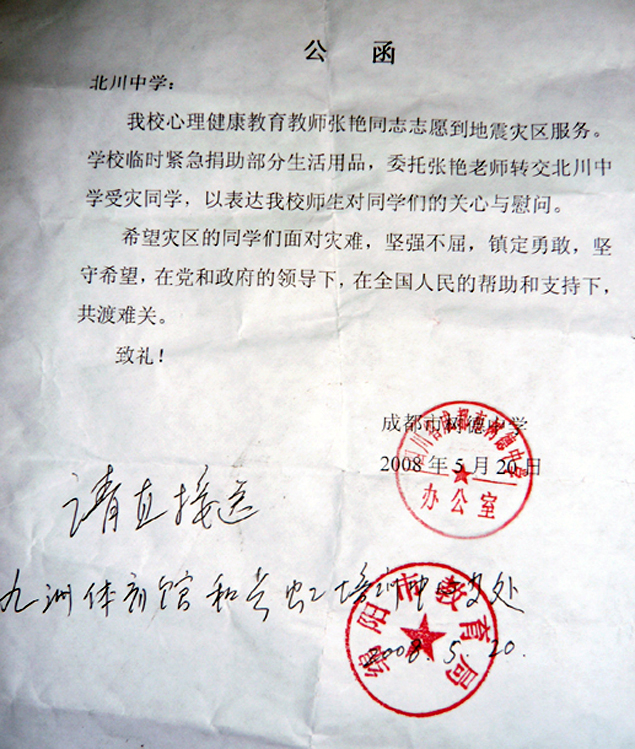 公 函
北川中学：
我校心理健康教育教师张艳同志志愿到地震灾区服务。
学校临时紧急捐助部分生活用品，委托张艳老师转交北川中
学受灾同学，以表达我校师生对同学们的关心与慰问。
希望灾区的同学们面对灾难，坚强不屈，镇定勇敢，坚
守希望，在党和政府的领导下，在全国人民的帮助和支持下，
共渡难关。
致礼！
成都市树德中学
2008年5月20日
四川省成都市树德中学
办公室
请直接送
九洲体育馆和长虹培训中心处
绵阳市教育局
2008.5.20.